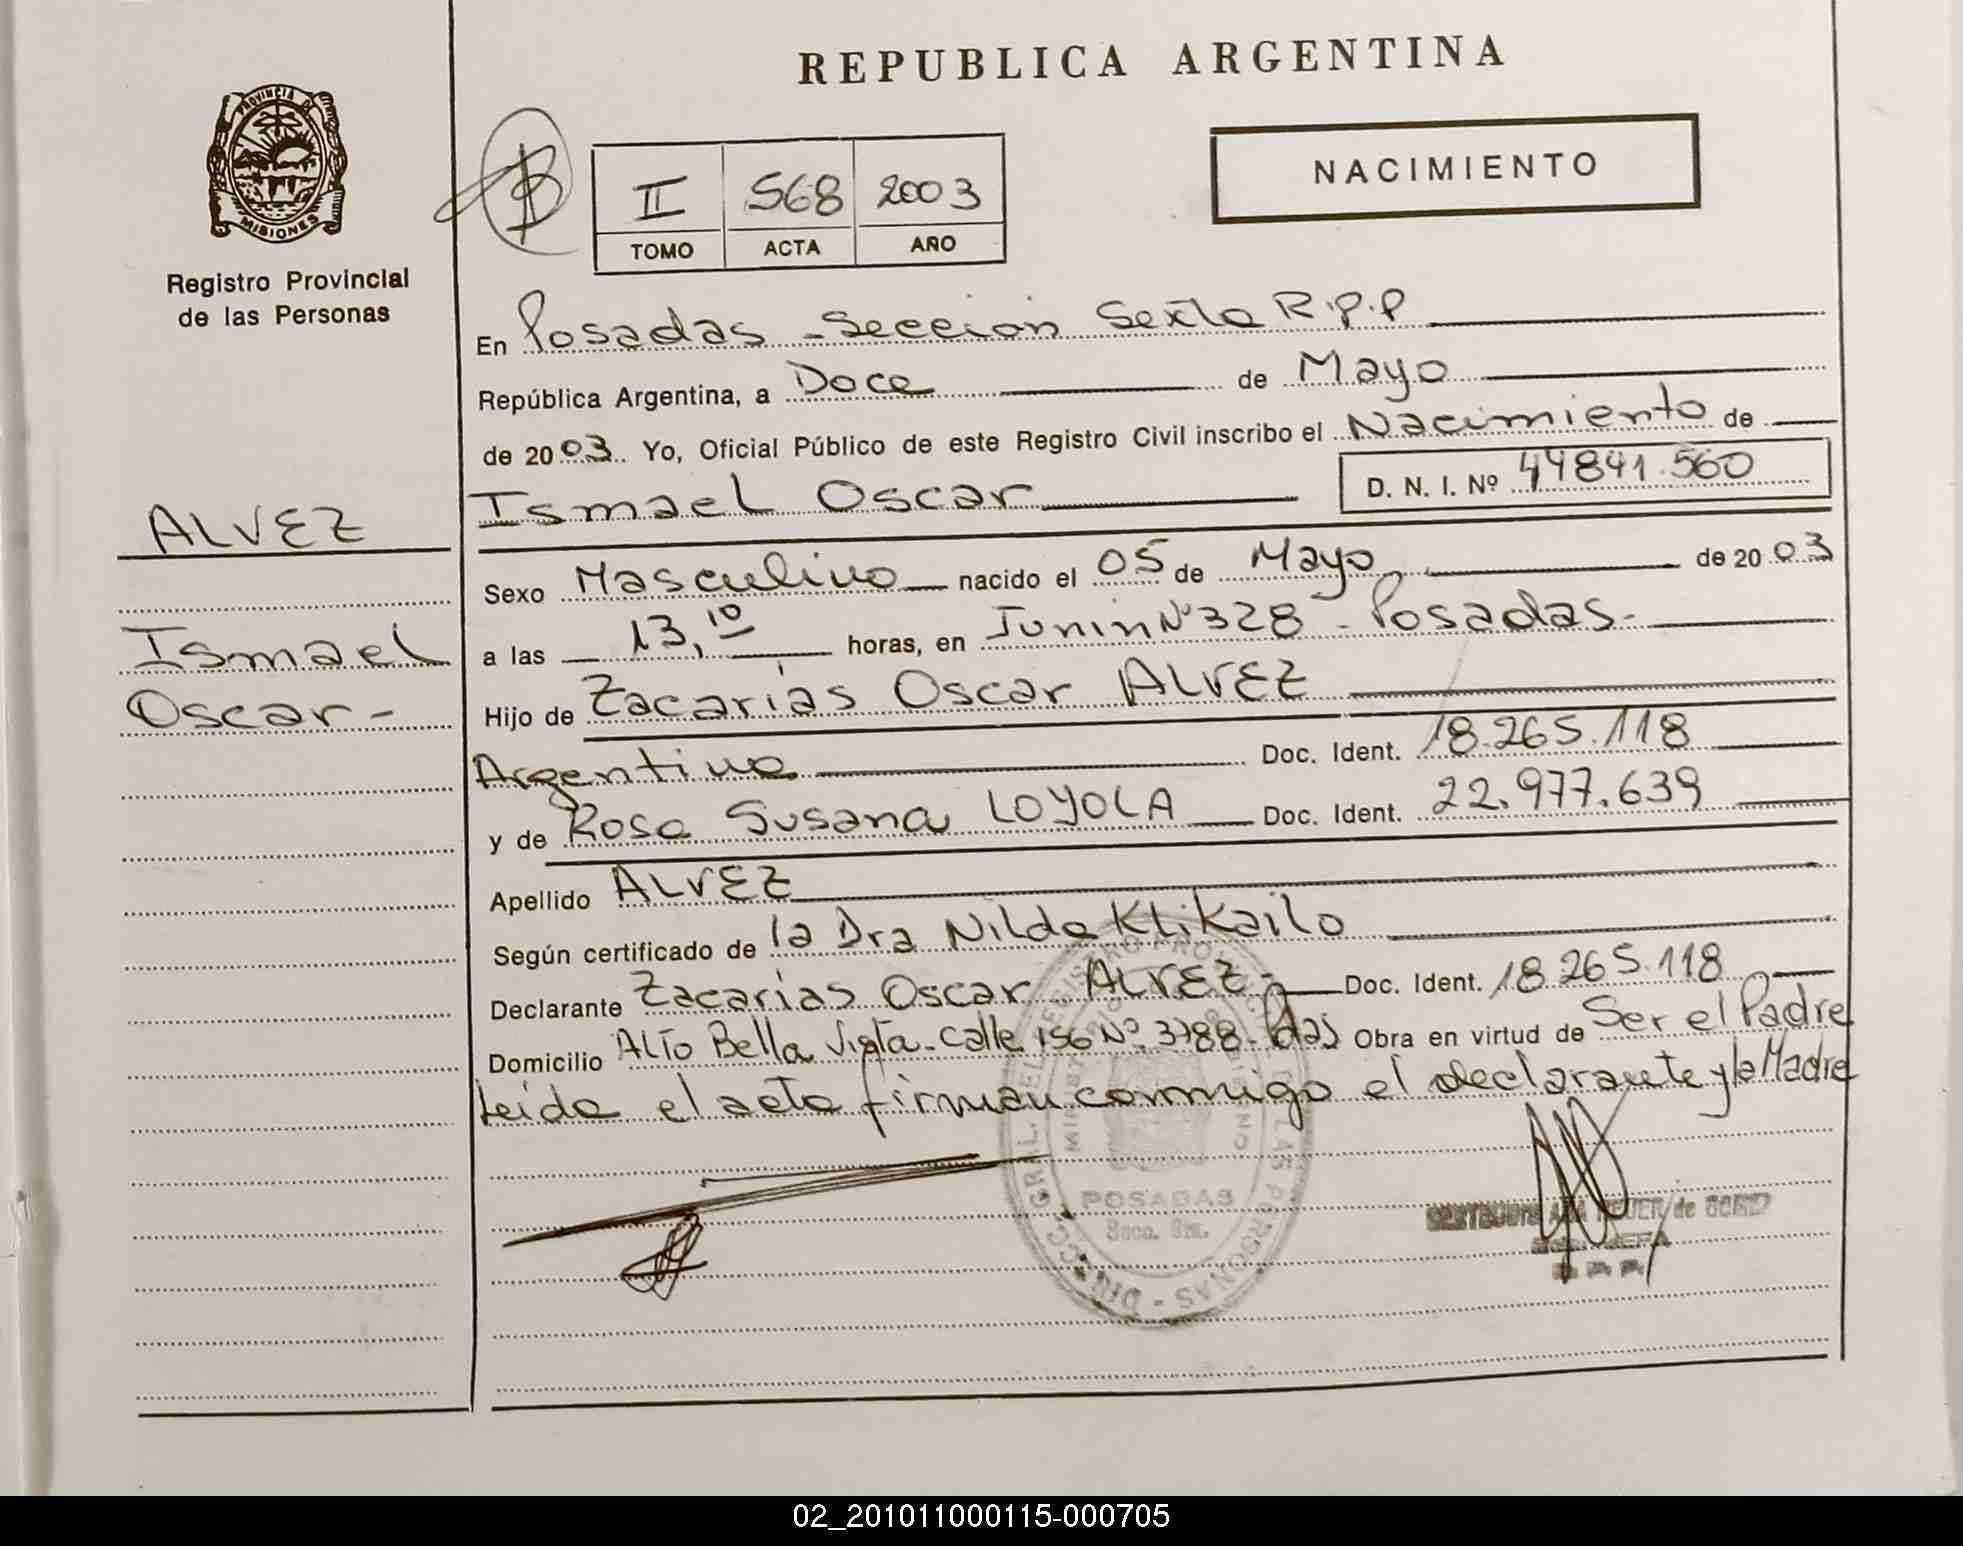 REPUBLICA ARGENTINA
PROVINCIA DE
MISIONES
Registro Provincial
de las Personas
II 568 2003
TOMO ACTA AÑO
NACIMIENTO
En Posadas - Seccion Sexta R.P.P
República Argentina, a Doce de Mayo
de 2003. Yo, Oficial Público de este Registro Civil inscribo el Nacimiento de
Ismael Oscar D. N. I. Nº 44841.560
ALVEZ
Ismael
Oscar-
Sexo Masculino nacido el 05 de Mayo de 2003
a las 13,10 horas, en Junin Nº 328 - Posadas.-
Hijo de Zacarías Oscar ALVEZ
Argentino Doc. Ident. 18.265.118
y de Rosa Susana LOYOLA Doc. Ident. 22.977.639
Apellido ALVEZ
Según certificado de la Dra Nilda Klikailo
Declarante Zacarias Oscar ALVEZ- Doc. Ident. 18.265.118
Domicilio Alto Bella Vista-Calle 156 Nº 3788- Pdas Obra en virtud de Ser el Padre
Leída el acta firman conmigo el declarante y la Madre
POSADAS
Secc. 6ta.
02_201011000115-000705